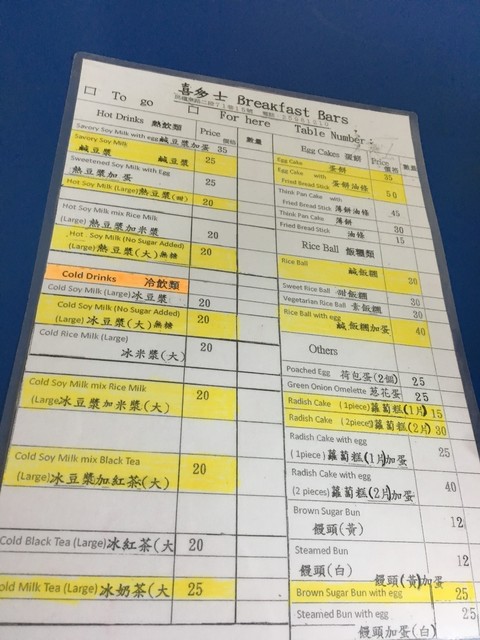 喜多士 Breakfast Bars
To go
For here
Table Number:
Hot Drinks 熱飲類
Price
價格
數量
Savory Soy Milk with egg鹹豆漿加蛋 35
Savory Soy Milk
鹹豆漿 鹹豆漿 25
Sweetened Soy Milk with Egg
熱豆漿加蛋 25
Hot Soy Milk (Large)熱豆漿(甜) 20
Hot Soy Milk mix Rice Milk
(Large)熱豆漿加米漿 20
Hot Soy Milk (No Sugar Added)
(Large)熱豆漿(大)無糖 20
Cold Drinks 冷飲類
Cold Soy Milk (Large)冰豆漿 20
Cold Soy Milk (No Sugar Added)
(Large)冰豆漿(大)無糖 20
Cold Rice Milk (Large)
冰米漿(大) 20
Cold Soy Milk mix Rice Milk
(Large)冰豆漿加米漿(大) 20
Cold Soy Milk mix Black Tea
(Large)冰豆漿加紅茶(大) 20
Cold Black Tea (Large)冰紅茶(大 20
old Milk Tea (Large)冰奶茶(大 25
Egg Cakes 蛋餅
Price
價格
數量
Egg Cake 蛋餅 35
Egg Cake with
Fried Bread Stick 蛋餅油條 50
Think Pan Cake with
Fried Bread Stick 薄餅油條 45
Think Pan Cake 薄餅 30
Fried Bread Stick 油條 15
Rice Ball 飯糰類
Rice Ball
鹹飯糰 30
Sweet Rice Ball 甜飯糰 30
Vegetarian Rice Ball 素飯糰 30
Rice Ball with egg
鹹飯糰加蛋 40
Others
Poached Egg 荷包蛋(2個) 25
Green Onion Omelette 蔥花蛋 25
Radish Cake (1piece)蘿蔔糕(1片) 15
Radish Cake (2piece)蘿蔔糕(2片) 30
Radish Cake with egg
(1piece)蘿蔔糕(1片)加蛋 25
Radish Cake with egg
(2 pieces)蘿蔔糕(2片)加蛋 40
Brown Sugar Bun
饅頭(黃) 12
Steamed Bun
饅頭(白) 12
饅頭(黃)加蛋
Brown Sugar Bun with egg 25
Steamed Bun with egg 25
饅頭加蛋(白)